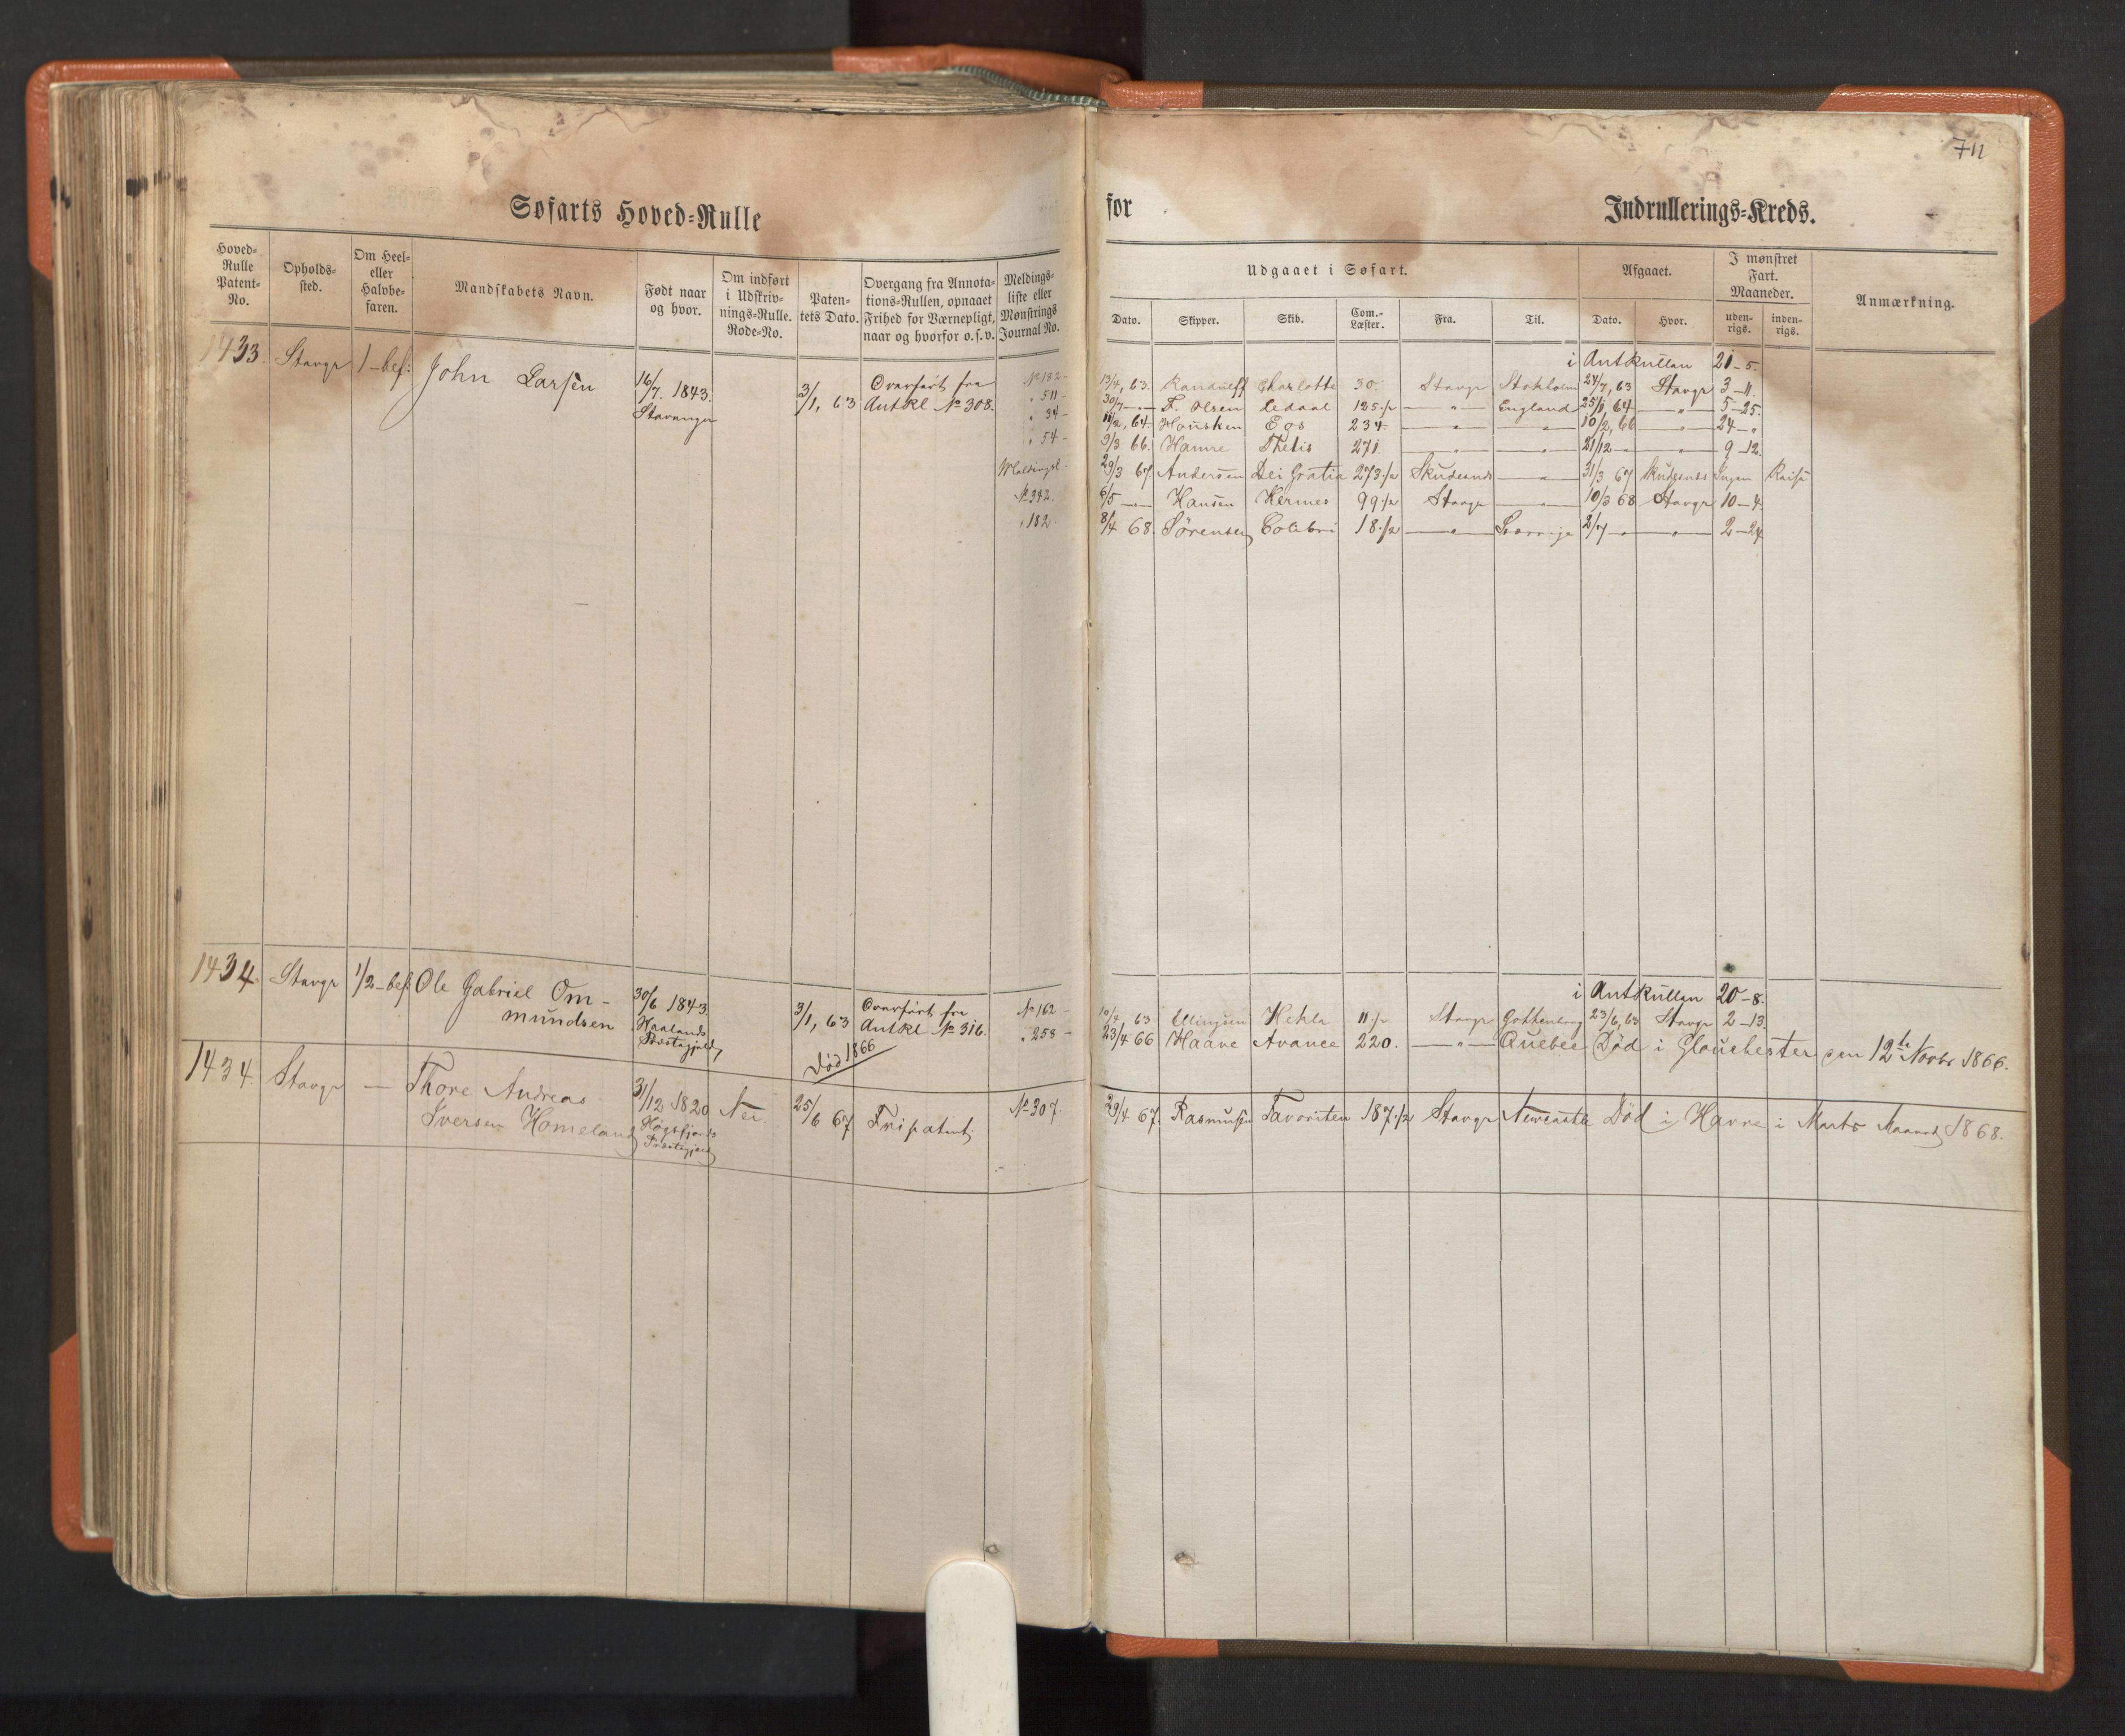 711
Søfarts Hoved-Rulle for Indrullerings-Kreds.
Hoved-Rulle Patent-No.
Opholds-sted.
Om Heel- eller Halvbe-faren.
Mandskabets Navn.
Født naar og hvor.
Om indført i Udskriv-nings-Rulle. Rode-No.
Paten-tets Dato.
Overgang fra Annota-tions-Rullen, opnaaet Frihed for Værnepligt, naar og hvorfor o. s. v.
Meldings-liste eller Mønstrings Journal No.
Udgaaet i Søfart.
Dato. Skipper. Skib. Com.-Læster. Fra. Til.
Afgaaet.
Dato. Hvor.
I mønstret Fart. Maaneder.
uden-rigs. inden-rigs.
Anmærkning.
1433. Stavgr 1-bef: John Larsen 16/7. 1843. Stavanger 3/1, 63 Overført fra AntRl № 308.
i AntRullen 21-5.
№ 132- 13/4, 63. Charlotte 30. Stavgr Stokholm 24/7, 63 Stavgr 3-11.
" 511- 30/7 —"— F. Olsen Ledaal 125 1/2 —"— England 25/1, 64 —"— 5-25.
" 34- 11/2, 64. Housken Egs 234. —"— —"— 10/2, 66 —"— 24-"
" 54- 9/3 66. Hamre Thetis 271. —"— —"— 21/12 —"— —"— 9-12.
Meldingsl. 29/3 67 Andersen Dei Gratia 273 1/2 Skudesnds —"— 31/3 67 Skudesnes Ingen Reise
№ 342. 6/5 —"— Hansen Hermes 99 1/2 Stavgr —"— 10/3 68 Stavgr 10-4.
" 182. 8/4 68. Sørensen Colibri 18 1/2 —"— Sverrige 2/7 —"— —"— 2-24
1434. Stavgr 1/2-bef: Ole Gabriel Om-mundsen 30/6 1843. Haalands Præstegjeld 3/1, 63 Overført fra AntRl № 316.
Død 1866
i AntRullen 20-8.
№ 162- 10/4 63 Ellingsen Hekla 11 1/2 Stavgr Gothenborg 23/6, 63 Stavgr 2-13.
" 258- 23/4 66 Haave Avance 220. —"— Quebec Død i Glouchester den 12te Novbr 1866.
1434. Stavgr — Thore Andreas Iversen Homeland 31/12 1820 Høgsfjords Præstegjeld Nei. 25/6 67 Fripatent № 307.
29/4 67. Rasmusen Favoriten 187 1/2 Stavgr Newcastle Død i Havre i Marts Maaned 1868.